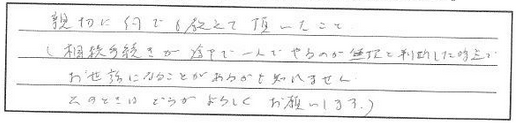 親切に何でも教えて頂いたこと
(相続手続きが途中で一人でやるのが無理と判断した時点で
お世話になることがあるかも知れません
そのときはどうかよろしくお願いします。)